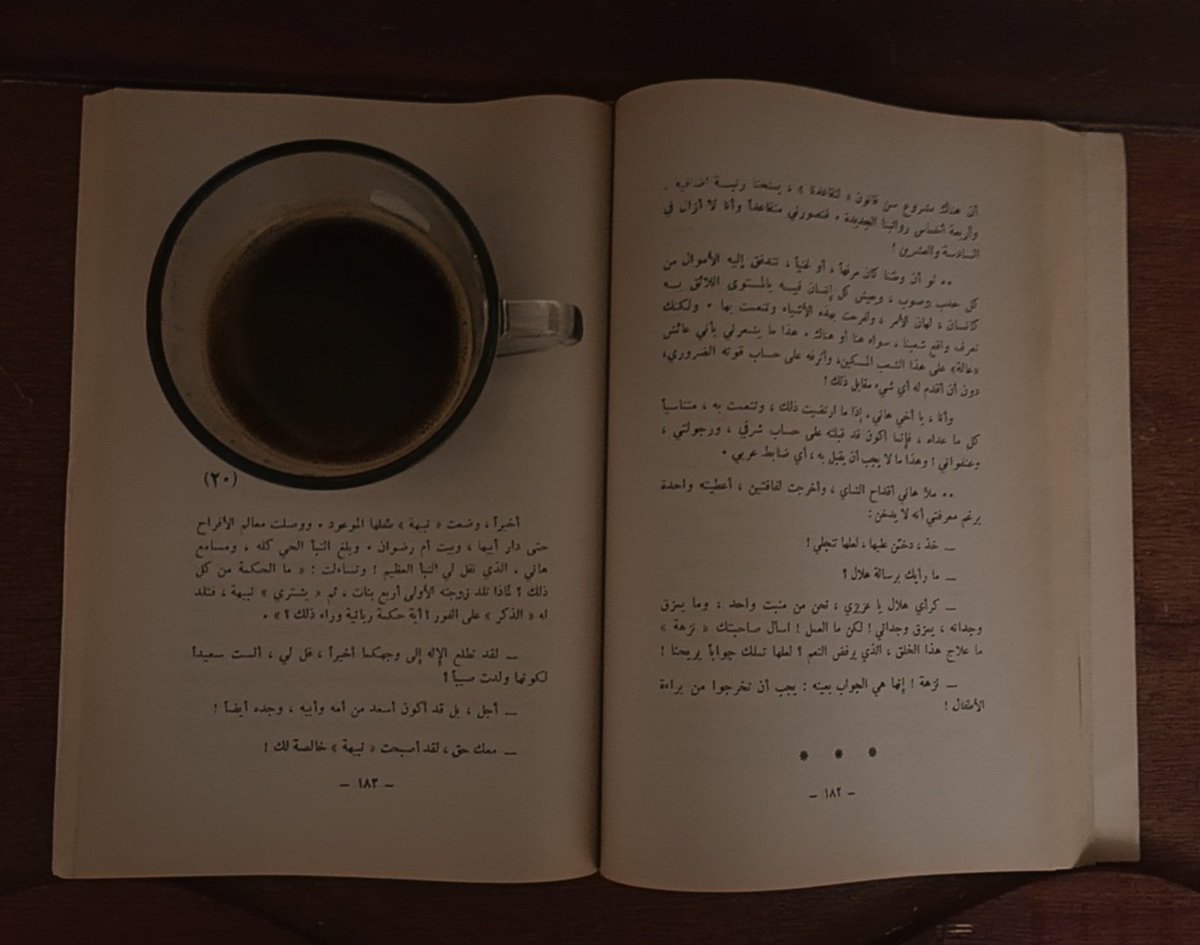 أن هناك مشروع سن قانون « لتقاعدنا » ، يمنحنا رتبة اضافية ،
وأربعة أخماس رواتبنا الجديدة • فتصورني متقاعداً وأنا لا أزال في
السادسة والعشرين !
•• لو أن وطننا كان مرفهاً ، أو غنياً ، تتدفق إليه الأموال من
كل حدب وصوب ، ويعيش كل إنسان فيه بالمستوى اللائق به
كإنسان ، لهان الأمر ، ولفرحت بهذه الأشياء وتنعمت بها • ولكنك
تعرف واقع شعبنا ، سواء هنا أو هناك • هذا ما يشعرني بأني عائش
«عالة» على هذا الشعب المسكين، وأترفه على حساب قوته الضروري،
دون أن أقدم له أي شيء مقابل ذلك !
وأنا ، يا أخي هاني، إذا ما ارتضيت ذلك ، وتنعمت به ، متناسياً
كل ما عداه ، فإنما أكون قد قبلته على حساب شرفي ، ورجولتي ،
وعنفواني ! وهذا ما لا يجب أن يقبل به ، أي ضابط عربي •
•• ملأ هاني أقداح الشاي ، وأخرجت لفافتين ، أعطيته واحدة
برغم معرفتي أنه لا يدخن :
ــ خذ ، دخّن عليها ، لعلها تنجلي !
ــ ما رأيك برسالة هلال ؟
ــ كرأي هلال يا عزيزي ، نحن من منبت واحد ، وما يمزق
وجدانه ، يمزق وجداني ! لكن ما العمل ! اسأل صاحبتك « نزهة »
ما علاج هذا الخلق ، الذي يرفض النعم ؟ لعلها تملك جواباً يريحنا !
ــ نزهة ! إنها هي الجواب بعينه : يجب أن تخرجوا من براءة
الأطفال !
* * *
– ١٨٢ –
(٢٠)
أخيراً ، وضعت « نبيهة » طفلها الموعود • ووصلت معالم الأفراح
حتى دار أبيها ، وبيت أم رضوان • وبلغ النبأ الحي كله ، ومسامع
هاني ، الذي نقل لي النبأ العظيم ! وتساءلت : « ما الحكمة من كل
ذلك ؟ لماذا تلد زوجته الأولى أربع بنات ، ثم « يشتري » نبيهة ، فتلد
له « الذكر » على الفور ؟ أية حكمة ربانية وراء ذلك ؟ » •
ــ لقد تطلع الإله إلى وجهكما أخيراً ، قل لي ، ألست سعيداً
لكونها ولدت صبياً ؟
ــ أجل ، بل قد أكون أسعد من أمه وأبيه ، وجده أيضاً !
ــ معك حق ، لقد أصبحت « نبيهة » خالصة لك !
– ١٨٣ –